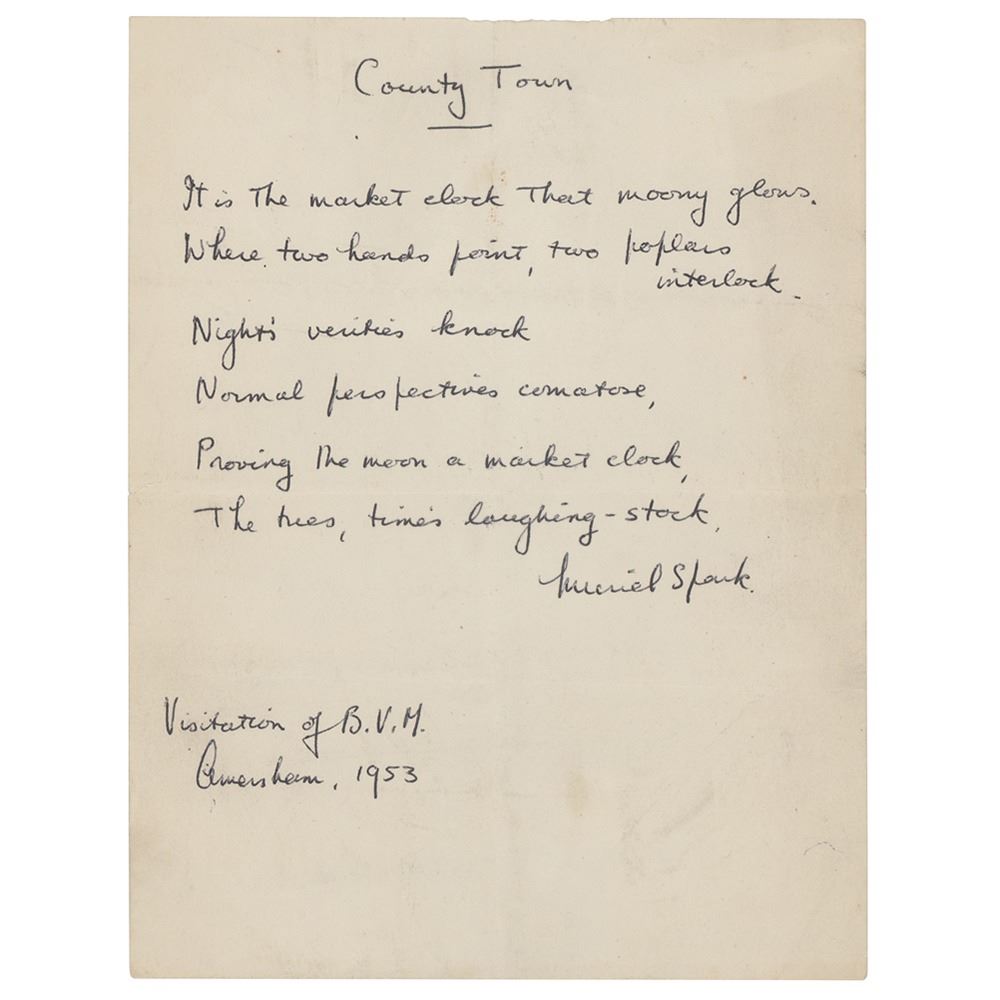 County Town
It is The market clock That moony glows.
Where two hands point, two poplars
interlock.
Night's verities knock
Normal perspectives comatose,
Proving The moon a market clock,
The trees, time's laughing-stock.
Muriel Spark.
Visitation of B.V.M.
Amersham, 1953